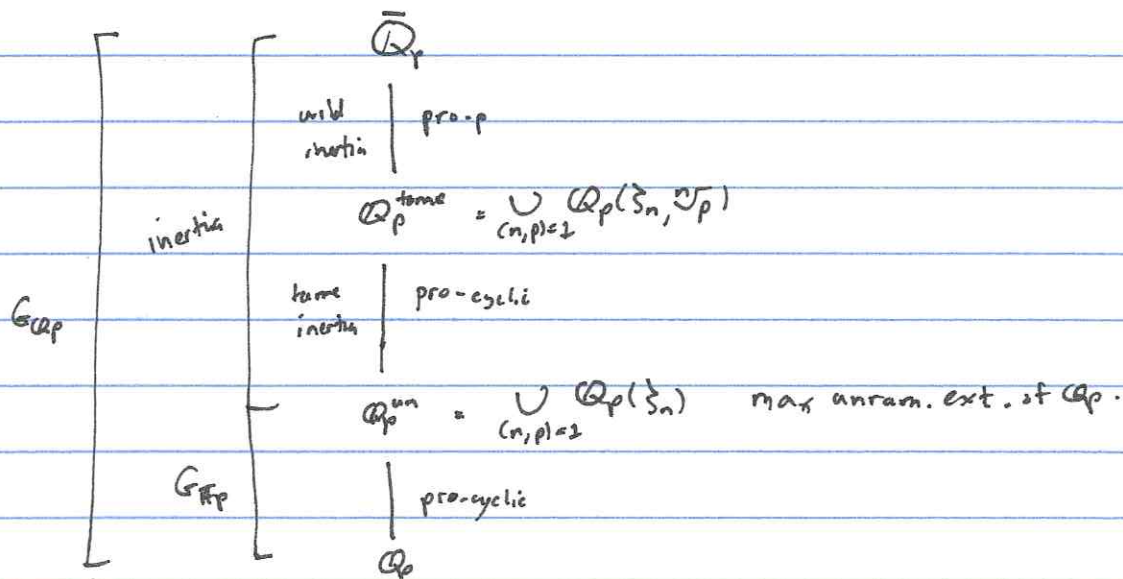 Q̄_p
wild inertia | pro-p
Q_p^tame = ∪_(n,p)=1 Q_p(ζ_n, ⁿ√p)
inertia
tame inertia | pro-cyclic
G_Q_p
Q_p^un = ∪_(n,p)=1 Q_p(ζ_n) max unram. ext. of Q_p.
G_F_p
pro-cyclic
Q_p